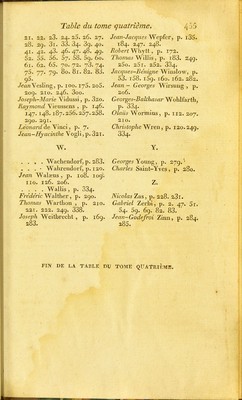 Table du tome quatrième. 455
21. 22. 23. 24. 25. 26. 27.
28. 29. 31. 33. 34. 39. 40.
41. 42. 43. 46. 47. 48. 49.
52. 55. 56. 57. 58. 59. 60.
61. 62. 65. 70. 72. 73. 74.
75. 77. 79. 80. 81. 82. 83.
95.
Jean Vesling, p. 100. 175. 205.
209. 210. 246. 300.
Joseph-Marie Vidussi, p. 320.
Raymond Vieussens, p. 146.
147. 148. 187. 236. 237. 238.
290. 291.
Léonard de Vinci, p. 7.
Jean-Hyacinthe Vogli, p. 321.
W.
. . . . Wachendorf, p. 283.
. . . . Wahrendorf, p. 120.
Jean Walæus, p. 108. 109.
110. 126. 206.
. . . . . Wallis, p. 334.
Frédéric Walther, p. 290.
Thomas Warthon, p. 210.
221. 222. 249. 338.
Joseph Weitbrecht, p. 169.
283.
Jean-Jacques Wepfer, p. 135.
184. 247. 248.
Robert Whytt, p. 172.
Thomas Willis, p. 183. 249.
250. 251. 252. 334.
Jacques-Bénigne Winslow, p.
53. 158. 159. 160. 162. 282.
Jean-Georges Wirsung, p.
206.
Georges-Balthazar Wohlfarth,
p. 334.
Olaüs Wormius, p. 112. 207.
210.
Christophe Wren, p. 120. 249.
334.
Y.
Georges Young, p. 279.
Charles Saint-Yves, p. 280.
Z.
Nicolas Zas, p. 228. 231.
Gabriel Zerbi, p. 2. 47. 51.
54. 59. 69. 82. 83.
Jean-Godefroi Zinn, p. 284.
285.
FIN DE LA TABLE DU TOME QUATRIÈME.